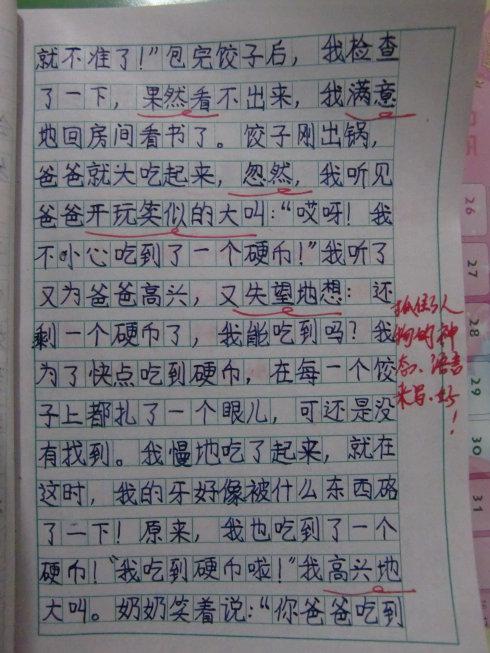 就不准了！”包完饺子后，我检查
了一下，果然看不出来，我满意
地回房间看书了。饺子刚出锅，
爸爸就大吃起来，忽然，我听见
爸爸开玩笑似的大叫：“哎呀！我
不小心吃到了一个硬币！”我听了
又为爸爸高兴，又失望地想：还
剩一个硬币了，我能吃到吗？我
为了快点吃到硬币，在每一个饺
子上都扎了一个眼儿，可还是没
有找到。我慢地吃了起来，就在
这时，我的牙好像被什么东西硌
了一下！原来，我也吃到了一个
硬币！“我吃到硬币啦！”我高兴地
大叫。奶奶笑着说：“你爸爸吃到
抓住了人
物的神
态、语言
来写，好
！
26
27
28
29
30
31